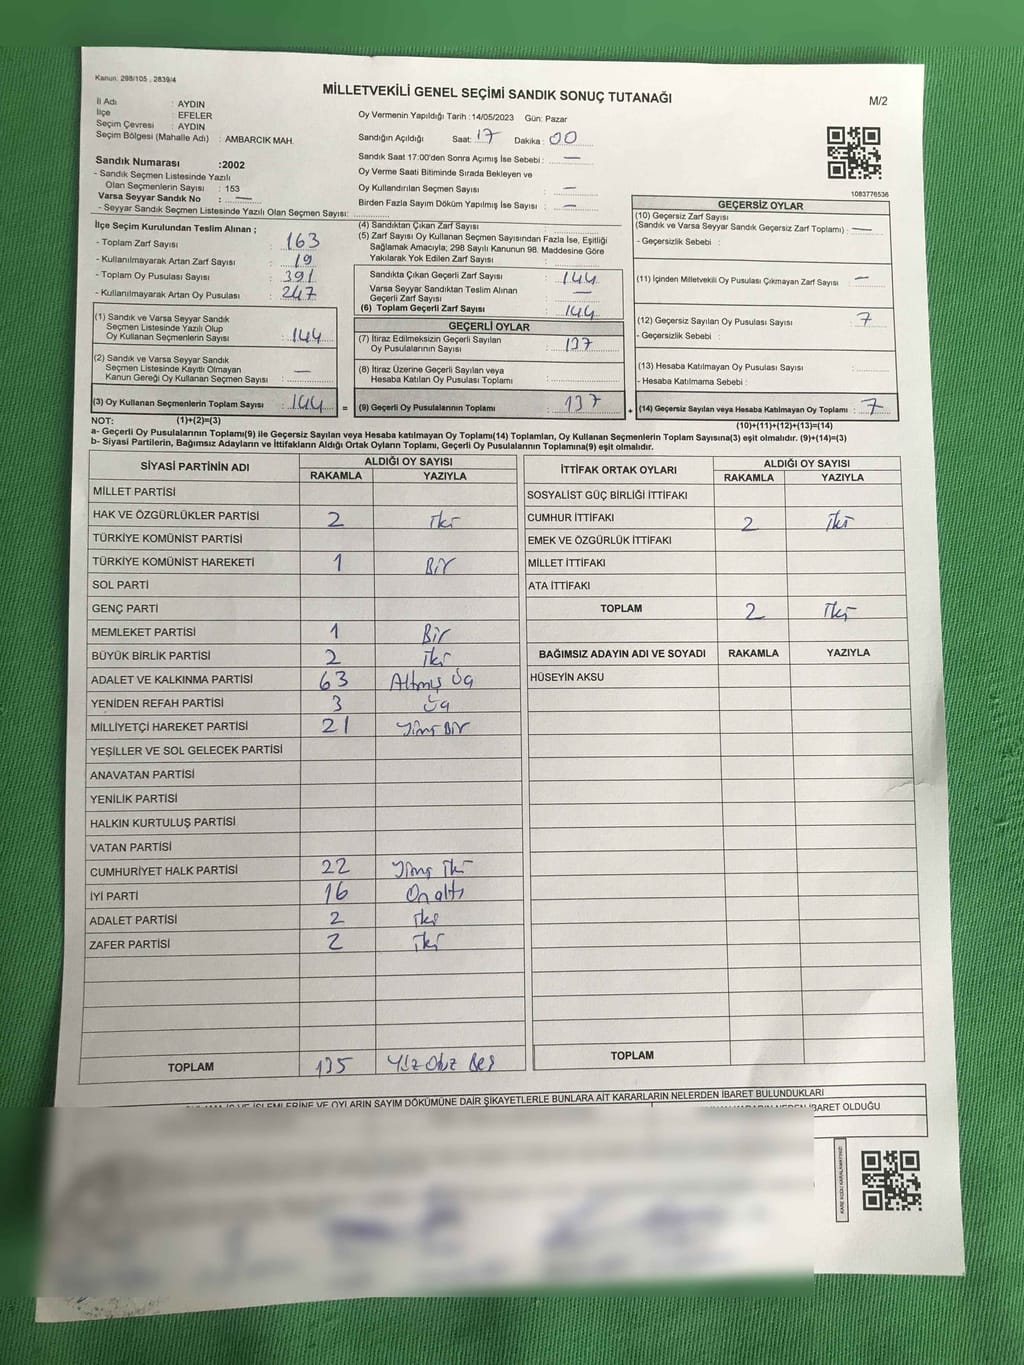 Kanun: 298/105 , 2839/4
MİLLETVEKİLİ GENEL SEÇİMİ SANDIK SONUÇ TUTANAĞI
M/2
İl Adı : AYDIN
İlçe : EFELER
Seçim Çevresi : AYDIN
Seçim Bölgesi (Mahalle Adı) : AMBARCIK MAH.
Sandık Numarası :2002
- Sandık Seçmen Listesinde Yazılı
Olan Seçmenlerin Sayısı : 153
Varsa Seyyar Sandık No : —
- Seyyar Sandık Seçmen Listesinde Yazılı Olan Seçmen Sayısı:
Oy Vermenin Yapıldığı Tarih :14/05/2023 Gün: Pazar
Sandığın Açıldığı Saat: 17 Dakika: 00
Sandık Saat 17:00'den Sonra Açımış İse Sebebi : —
Oy Verme Saati Bitiminde Sırada Bekleyen ve
Oy Kullandırılan Seçmen Sayısı : —
Birden Fazla Sayım Döküm Yapılmış İse Sayısı : —
1083776536
İlçe Seçim Kurulundan Teslim Alınan ;
- Toplam Zarf Sayısı : 163
- Kullanılmayarak Artan Zarf Sayısı : 19
- Toplam Oy Pusulası Sayısı : 391
- Kullanılmayarak Artan Oy Pusulası : 247
(1) Sandık ve Varsa Seyyar Sandık
Seçmen Listesinde Yazılı Olup
Oy Kullanan Seçmenlerin Sayısı : 144
(2) Sandık ve Varsa Seyyar Sandık
Seçmen Listesinde Kayıtlı Olmayan
Kanun Gereği Oy Kullanan Seçmen Sayısı : —
(3) Oy Kullanan Seçmenlerin Toplam Sayısı : 144 =
(4) Sandıktan Çıkan Zarf Sayısı :
(5) Zarf Sayısı Oy Kullanan Seçmen Sayısından Fazla İse, Eşitliği
Sağlamak Amacıyla; 298 Sayılı Kanunun 98. Maddesine Göre
Yakılarak Yok Edilen Zarf Sayısı :
Sandıkta Çıkan Geçerli Zarf Sayısı : 144
Varsa Seyyar Sandıktan Teslim Alınan
Geçerli Zarf Sayısı : —
(6) Toplam Geçerli Zarf Sayısı : 144
GEÇERLİ OYLAR
(7) İtiraz Edilmeksizin Geçerli Sayılan
Oy Pusulalarının Sayısı : 137
(8) İtiraz Üzerine Geçerli Sayılan veya
Hesaba Katılan Oy Pusulası Toplamı :
(9) Geçerli Oy Pusulalarının Toplamı : 137 +
GEÇERSİZ OYLAR
(10) Geçersiz Zarf Sayısı
(Sandık ve Varsa Seyyar Sandık Geçersiz Zarf Toplamı) : —
- Geçersizlik Sebebi :
(11) İçinden Milletvekili Oy Pusulası Çıkmayan Zarf Sayısı : —
(12) Geçersiz Sayılan Oy Pusulası Sayısı : 7
- Geçersizlik Sebebi :
(13) Hesaba Katılmayan Oy Pusulası Sayısı :
- Hesaba Katılmama Sebebi :
(14) Geçersiz Sayılan veya Hesaba Katılmayan Oy Toplamı : 7
NOT: (1)+(2)=(3) (10)+(11)+(12)+(13)=(14)
a- Geçerli Oy Pusulalarının Toplamı(9) ile Geçersiz Sayılan veya Hesaba katılmayan Oy Toplamı(14) Toplamları, Oy Kullanan Seçmenlerin Toplam Sayısına(3) eşit olmalıdır. (9)+(14)=(3)
b- Siyasi Partilerin, Bağımsız Adayların ve İttifakların Aldığı Ortak Oyların Toplamı, Geçerli Oy Pusulalarının Toplamına(9) eşit olmalıdır.
SİYASİ PARTİNİN ADI ALDIĞI OY SAYISI
RAKAMLA YAZIYLA
MİLLET PARTİSİ
HAK VE ÖZGÜRLÜKLER PARTİSİ 2 iki
TÜRKİYE KOMÜNİST PARTİSİ
TÜRKİYE KOMÜNİST HAREKETİ 1 Bir
SOL PARTİ
GENÇ PARTİ
MEMLEKET PARTİSİ 1 Bir
BÜYÜK BİRLİK PARTİSİ 2 iki
ADALET VE KALKINMA PARTİSİ 63 Altmış Üç
YENİDEN REFAH PARTİSİ 3 Üç
MİLLİYETÇİ HAREKET PARTİSİ 21 Yirmi Bir
YEŞİLLER VE SOL GELECEK PARTİSİ
ANAVATAN PARTİSİ
YENİLİK PARTİSİ
HALKIN KURTULUŞ PARTİSİ
VATAN PARTİSİ
CUMHURİYET HALK PARTİSİ 22 Yirmi iki
İYİ PARTİ 16 On altı
ADALET PARTİSİ 2 iki
ZAFER PARTİSİ 2 iki
TOPLAM 135 Yüz Otuz Beş
İTTİFAK ORTAK OYLARI ALDIĞI OY SAYISI
RAKAMLA YAZIYLA
SOSYALİST GÜÇ BİRLİĞİ İTTİFAKI
CUMHUR İTTİFAKI 2 iki
EMEK VE ÖZGÜRLÜK İTTİFAKI
MİLLET İTTİFAKI
ATA İTTİFAKI
TOPLAM 2 iki
BAĞIMSIZ ADAYIN ADI VE SOYADI RAKAMLA YAZIYLA
HÜSEYİN AKSU
TOPLAM
İŞLEMLERİNE VE OYLARIN SAYIM DÖKÜMÜNE DAİR ŞİKAYETLERLE BUNLARA AİT KARARLARIN NELERDEN İBARET BULUNDUKLARI
İBARET OLDUĞU
KARE KODU KARALAMAYINIZ!